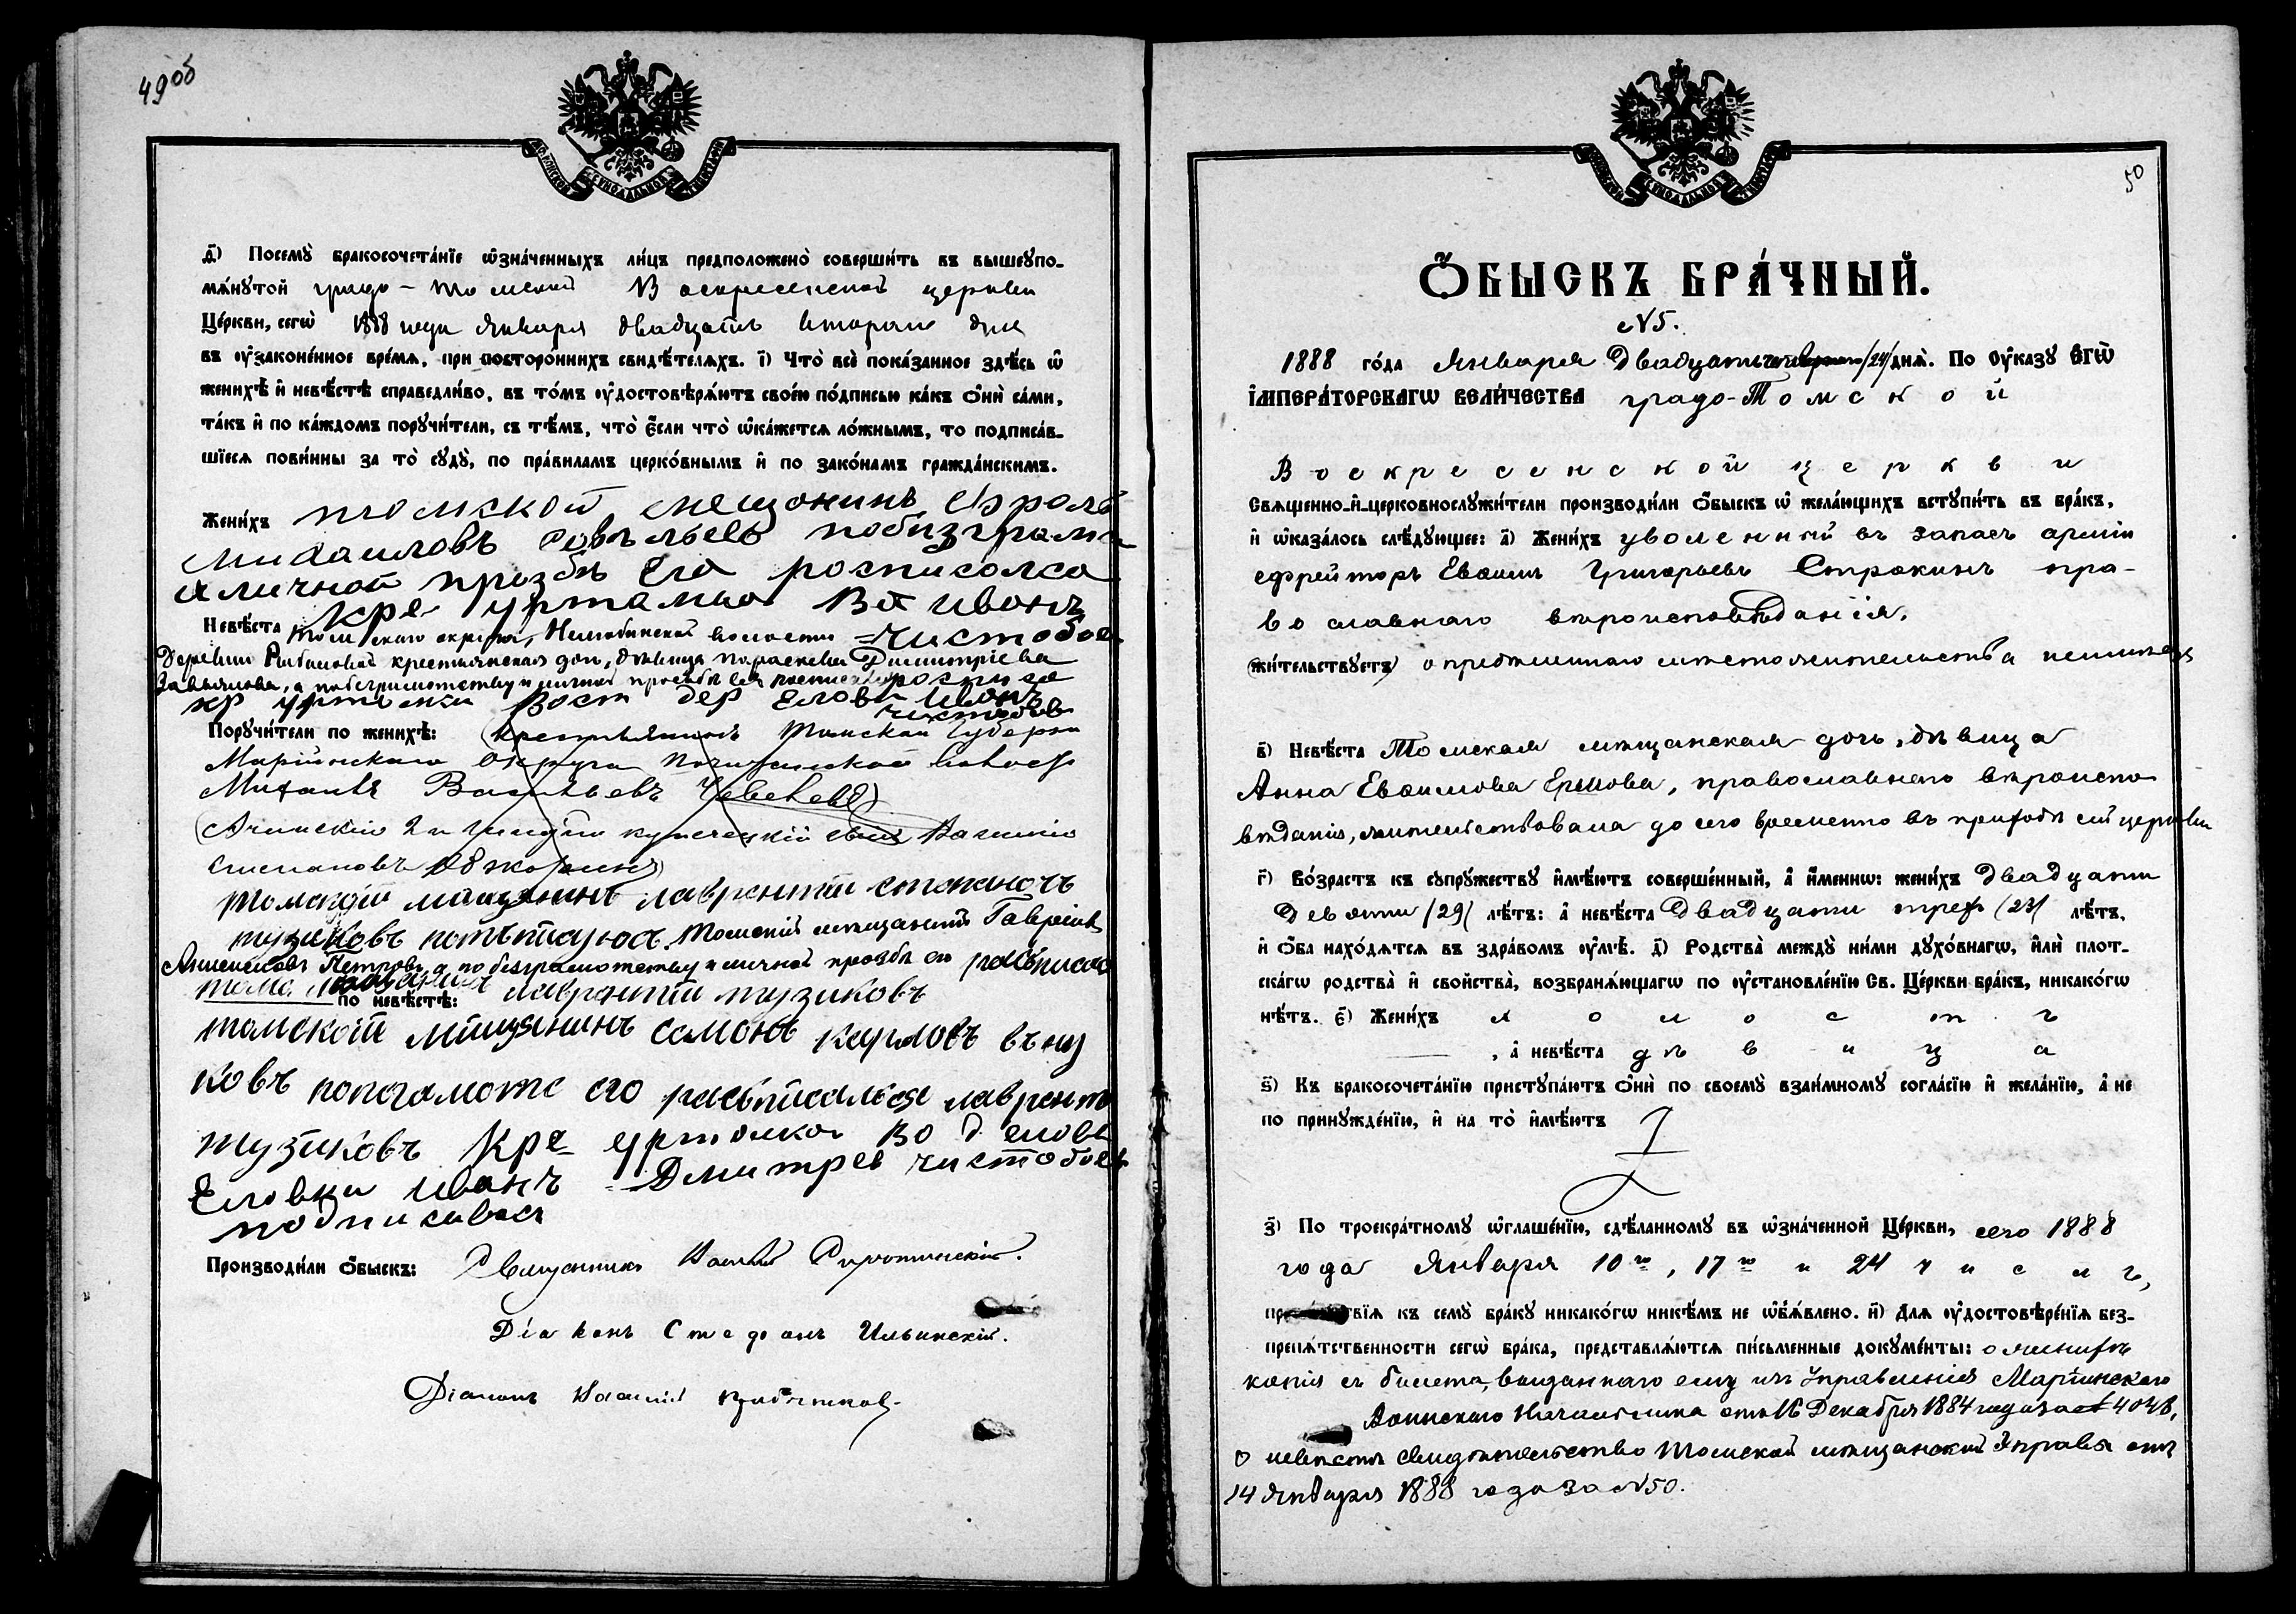 49об
д҃) Посемꙋ̀ бракосочета́нїе ѡ҆зна́ченныхъ ли́цъ предположено̀ соверши́ть въ вышеꙋпо-
мѧ́нꙋтой градо-Томской Воскресенской церкви
Це́ркви, сегѡ̀ 1888 года Января двадцать втораго дня
въ ᲂу҆законе́нное вре́мѧ, при посторо́ннихъ свидѣ́телѧхъ. і҃) Что̀ всѐ пока́занное здѣ́сь ѡ҆
женихѣ̀ и҆ невѣ́стѣ справедли́во, въ то́мъ ᲂу҆достовѣрѧ́ютъ свое́ю по́дписью ка́къ ѻ҆нѝ са́ми,
та́къ и҆ по ка́ждомъ порꙋчи́тели, съ тѣ́мъ, что̀ є҆́сли что̀ ѡ҆ка́жетсѧ ло́жнымъ, то подписа́в-
шїесѧ пови́нны за то̀ сꙋдꙋ̀, по пра́виламъ церко́внымъ и҆ по зако́намъ гражда́нскимъ.
Жени́хъ томской мещонинъ Фролъ
Михаиловъ Совѣльевъ побизграмо
и личной прозбѣ Его росписолса
Кре уртамкой Во Ивонъ
Невѣ́ста Томскаго округа, Нелюбинской волости =Чистобоев
Деревни Рыбаловой крестьянская дочь, дѣвица Параскева Димитріева
Завьялова, а по безграмотству и личной просьбѣ ея
кр уртамки Вост дер Еловки Ивонъ
Чистобоев
Порꙋчи́тели по женихѣ̀: (Крестьянинъ Томской Губерни
Маріинскаго Округа Почитанской волости
Михаилъ Васильевъ
(Ачинскій 2й гильдіи купеческій сынъ Василій
Степановъ
томскоій мещенинъ лаврентіи степановъ
тузиковъ Томскій мѣщанинъ Гавріилъ
Петровъ а по безграмотству и личной просьбѣ его росьписолс
по невѣ́стѣ: лаврентіи тузиковъ
томскоіи мищенинъ семонъ карловъ вьну
ковъ попограмоте его росьписалься лаврент
тузиковъ Кре уртомкой Во д еловк
Еловки Ивонъ Дмитрев чистобоев
подписався
Производи́ли ѻ҆́быскъ: Священникъ Василій Сиротинскій.
Діаконъ Стефанъ Ильинскій.
Діаконъ Василій
50
Ѻ҆́БЫСКЪ БРА́ЧНЫЙ.
№5.
1888 го́да Января Двадцать четвертаго /24/ днѧ̀. По Оу҆ка́зꙋ Є҆ГѠ̀
І҆МПЕРА́ТОРСКАГѠ ВЕЛИ́ЧЕСТВА градо-Томской
Воскресенской церкви
Свѧщенно-и҆-церковнослꙋжи́тели производи́ли ѻ҆́быскъ ѡ҆ жела́ющихъ встꙋпи́ть въ бра́къ,
и҆ ѡ҆каза́лось слѣ́дꙋющее: а҃) Жени́хъ уволенный въ запасъ арміи
ефрейторъ Евѳимъ Григорьевъ Строкинъ пра-
вославнаго вѣроисповѣданія,
(жи́тельствꙋетъ)
в҃) Невѣ́ста Томская мѣщанская дочь, дѣвица
Анна Евѳимова Ершова, православнаго вѣроиспо
вѣданія, жительствовала до сего времени въ приходѣ сей церкви
г҃) Во́зрастъ къ сꙋпрꙋ́жествꙋ и҆мѣ́ютъ соверше́нный, а҆ и҆́меннѡ: жени́хъ двадцати
девяти /29/ лѣ́тъ: а҆ невѣ́ста двадцати трех /23/ лѣ́тъ,
и҆ ѻ҆́ба нахо́дѧтсѧ въ здра́вомъ ᲂу҆мѣ̀. д҃) Родства̀ междꙋ̀ ни́ми дꙋхо́внагѡ, и҆лѝ плот-
ска́гѡ родства̀ и҆ свойства̀, возбранѧ́ющагѡ по ᲂу҆становле́нїю Св. Це́ркви бра́къ, никако́гѡ
нѣ́тъ. є҃) Жени́хъ холостъ
, а҆ невѣ́ста дѣвица
ѕ҃) Къ бракосочета́нїю пристꙋпа́ютъ ѻ҆нѝ по своемꙋ̀ взаи́мномꙋ согла́сїю и҆ жела́нїю, а҆ не
по принꙋжде́нїю, и҆ на то̀ и҆мѣ́ютъ
з҃) По троекра́тномꙋ ѡ҆глаше́нїю, сдѣ́ланномꙋ въ ѡ҆зна́ченной Це́ркви, сего 1888
года Января 10го, 17го и 24 числъ,
препѧ́тствїѧ къ семꙋ̀ бра́кꙋ никако́гѡ никѣ́мъ не ѡ҆б̾ѧ́влено. и҃) Длѧ ᲂу҆достовѣре́нїѧ без-
препѧ́тственности сегѡ̀ бра́ка, представлѧ́ютсѧ пи́сьменные докꙋме́нты: о женихѣ
копія съ билета, выданнаго ему изъ Управленія Маріинскаго
Воинскаго Начальника отъ 16 Декабря 1884 года за № 4048,
о невѣстѣ свидѣтельство Томской мѣщанской Управы отъ
14 Января 1888 года за №50.